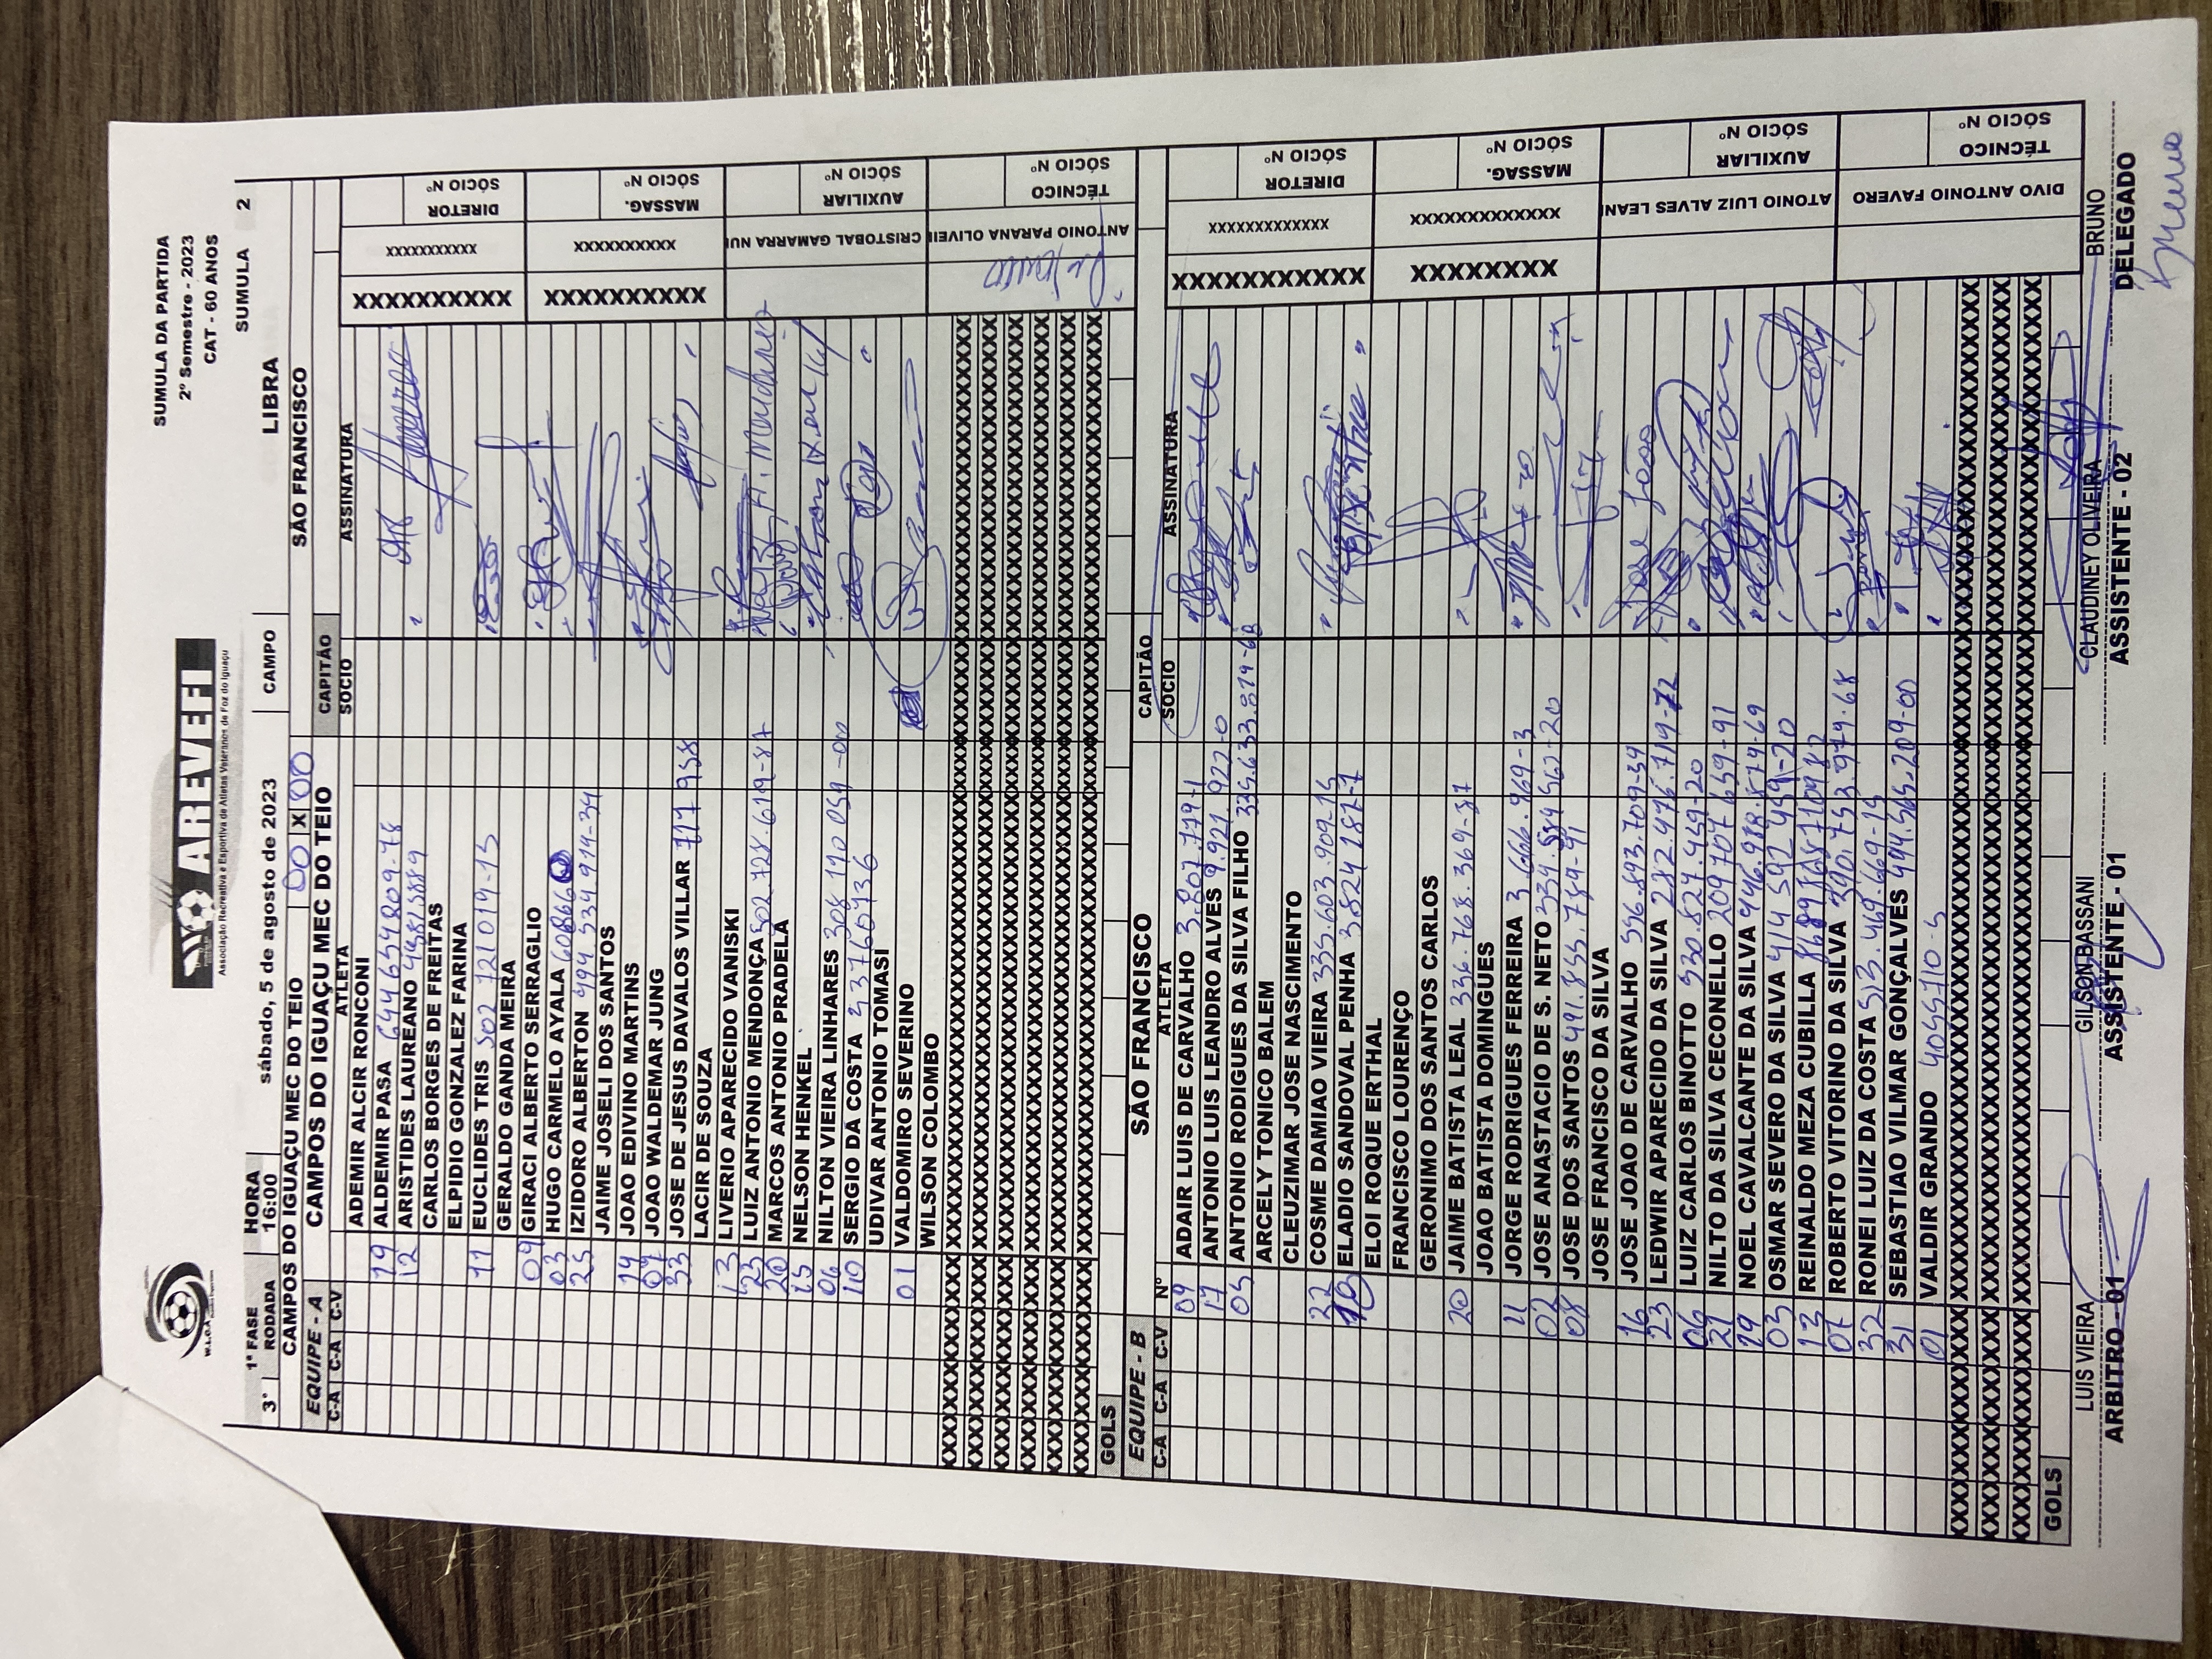 W.L.O.A
AREVEFI
Associação Recreativa e Esportiva de Atletas Veteranos de Foz do Iguaçu
SUMULA DA PARTIDA
2º Semestre - 2023
CAT - 60 ANOS
SUMULA 2
1ª FASE HORA
3° RODADA 16:00 sábado, 5 de agosto de 2023 CAMPO LIBRA
CAMPOS DO IGUAÇU MEC DO TEIO 00 X 00 SÃO FRANCISCO
EQUIPE - A CAMPOS DO IGUAÇU MEC DO TEIO CAPITÃO
C-A C-A C-V ATLETA SOCIO ASSINATURA
ADEMIR ALCIR RONCONI
19 ALDEMIR PASA 644 654 809-78
12 ARISTIDES LAUREANO 43815889
CARLOS BORGES DE FREITAS
ELPIDIO GONZALEZ FARINA
11 EUCLIDES TRIS 502 721 019-15
GERALDO GANDA MEIRA
09 GIRACI ALBERTO SERRAGLIO
03 HUGO CARMELO AYALA 608666
25 IZIDORO ALBERTON 494.534 914-34
JAIME JOSELI DOS SANTOS
14 JOAO EDIVINO MARTINS
07 JOAO WALDEMAR JUNG
33 JOSE DE JESUS DAVALOS VILLAR 717 958
LACIR DE SOUZA
13 LIVERIO APARECIDO VANISKI
23 LUIZ ANTONIO MENDONÇA 502.728.619-87
20 MARCOS ANTONIO PRADELA
15 NELSON HENKEL
06 NILTON VIEIRA LINHARES 308 110 059-00
10 SERGIO DA COSTA 4 37660736
UDIVAR ANTONIO TOMASI
01 VALDOMIRO SEVERINO
WILSON COLOMBO
XXXXXXXXXX XXXXXXXXXXX DIRETOR SÓCIO Nº
XXXXXXXXXX XXXXXXXXXX MASSAG. SÓCIO Nº
CRISTOBAL GAMARRA NUI AUXILIAR SÓCIO Nº
ANTONIO PARANA OLIVEIR TÉCNICO SÓCIO Nº
GOLS
EQUIPE - B SÃO FRANCISCO CAPITÃO
C-A C-A C-V Nº ATLETA SOCIO ASSINATURA
09 ADAIR LUIS DE CARVALHO 3.807.779-1
17 ANTONIO LUIS LEANDRO ALVES 9.921.922-0
05 ANTONIO RODRIGUES DA SILVA FILHO 335.633.819-68
ARCELY TONICO BALEM
CLEUZIMAR JOSE NASCIMENTO
22 COSME DAMIAO VIEIRA 335.603.909-15
10 ELADIO SANDOVAL PENHA 3.824 187-7
ELOI ROQUE ERTHAL
FRANCISCO LOURENÇO
GERONIMO DOS SANTOS CARLOS
20 JAIME BATISTA LEAL 336.768.369-87
JOAO BATISTA DOMINGUES
11 JORGE RODRIGUES FERREIRA 3 666.969-3
02 JOSE ANASTACIO DE S. NETO 334.584 567-20
08 JOSE DOS SANTOS 491.855.789-91
JOSE FRANCISCO DA SILVA
16 JOSE JOAO DE CARVALHO 596.893.709-59
23 LEDWIR APARECIDO DA SILVA 282.476.719-72
06 LUIZ CARLOS BINOTTO 530.827.459-20
21 NILTO DA SILVA CECONELLO 209 707 659-91
19 NOEL CAVALCANTE DA SILVA 446.938.879-69
03 OSMAR SEVERO DA SILVA 414 592 459-20
13 REINALDO MEZA CUBILLA
07 ROBERTO VITORINO DA SILVA 390.753.979.68
32 RONEI LUIZ DA COSTA 513.469.669-15
31 SEBASTIAO VILMAR GONÇALVES 494.565.209-00
01 VALDIR GRANDO 4055710-5
XXXXXXXXXXXX XXXXXXXXXXXXX DIRETOR SÓCIO Nº
XXXXXXXXX XXXXXXXXXXXXXX MASSAG. SÓCIO Nº
ATONIO LUIZ ALVES LEANI AUXILIAR SÓCIO Nº
DIVO ANTONIO FAVERO TÉCNICO SÓCIO Nº
GOLS
LUIS VIEIRA GILSON BASSANI CLAUDINEY OLIVEIRA BRUNO
ARBITRO - 01 ASSISTENTE - 01 ASSISTENTE - 02 DELEGADO
Bruno